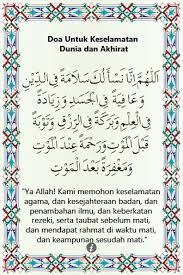 Doa Untuk Keselamatan
Dunia dan Akhirat
اَللّٰهُمَّ اِنَّا نَسْأَلُكَ سَلَامَةً فِى الدِّيْنِ
وَعَافِيَةً فِى الْجَسَدِ وَزِيَادَةً
فِى الْعِلْمِ وَبَرَكَةً فِى الرِّزْقِ وَتَوْبَةً
قَبْلَ الْمَوْتِ وَرَحْمَةً عِنْدَ الْمَوْتِ
وَمَغْفِرَةً بَعْدَ الْمَوْتِ
"Ya Allah! Kami memohon keselamatan
agama, dan kesejahteraan badan, dan
penambahan ilmu, dan keberkatan
rezeki, serta taubat sebelum mati,
dan mendapat rahmat di waktu mati,
dan keampunan sesudah mati."